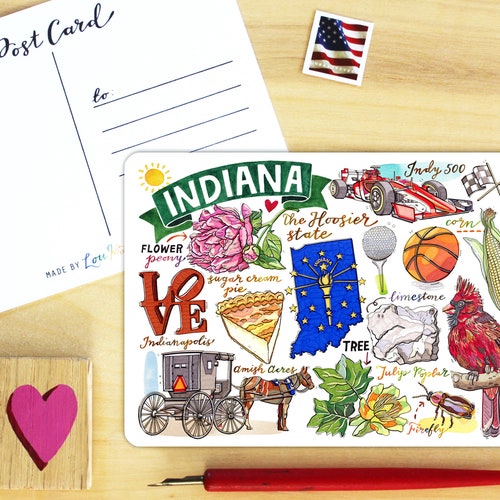 Post Card
to:
MADE BY
INDIANA
The Hoosier
state
Indy 500
corn
FLOWER
peony
sugar cream
pie
LOVE
Indianapolis
limestone
TREE
Tulip Poplar
Amish Acres
Firefly